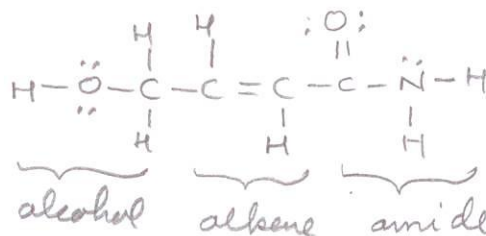 H H :O:
H—O—C—C=C—C—N—H
H H H
alcohol alkene amide